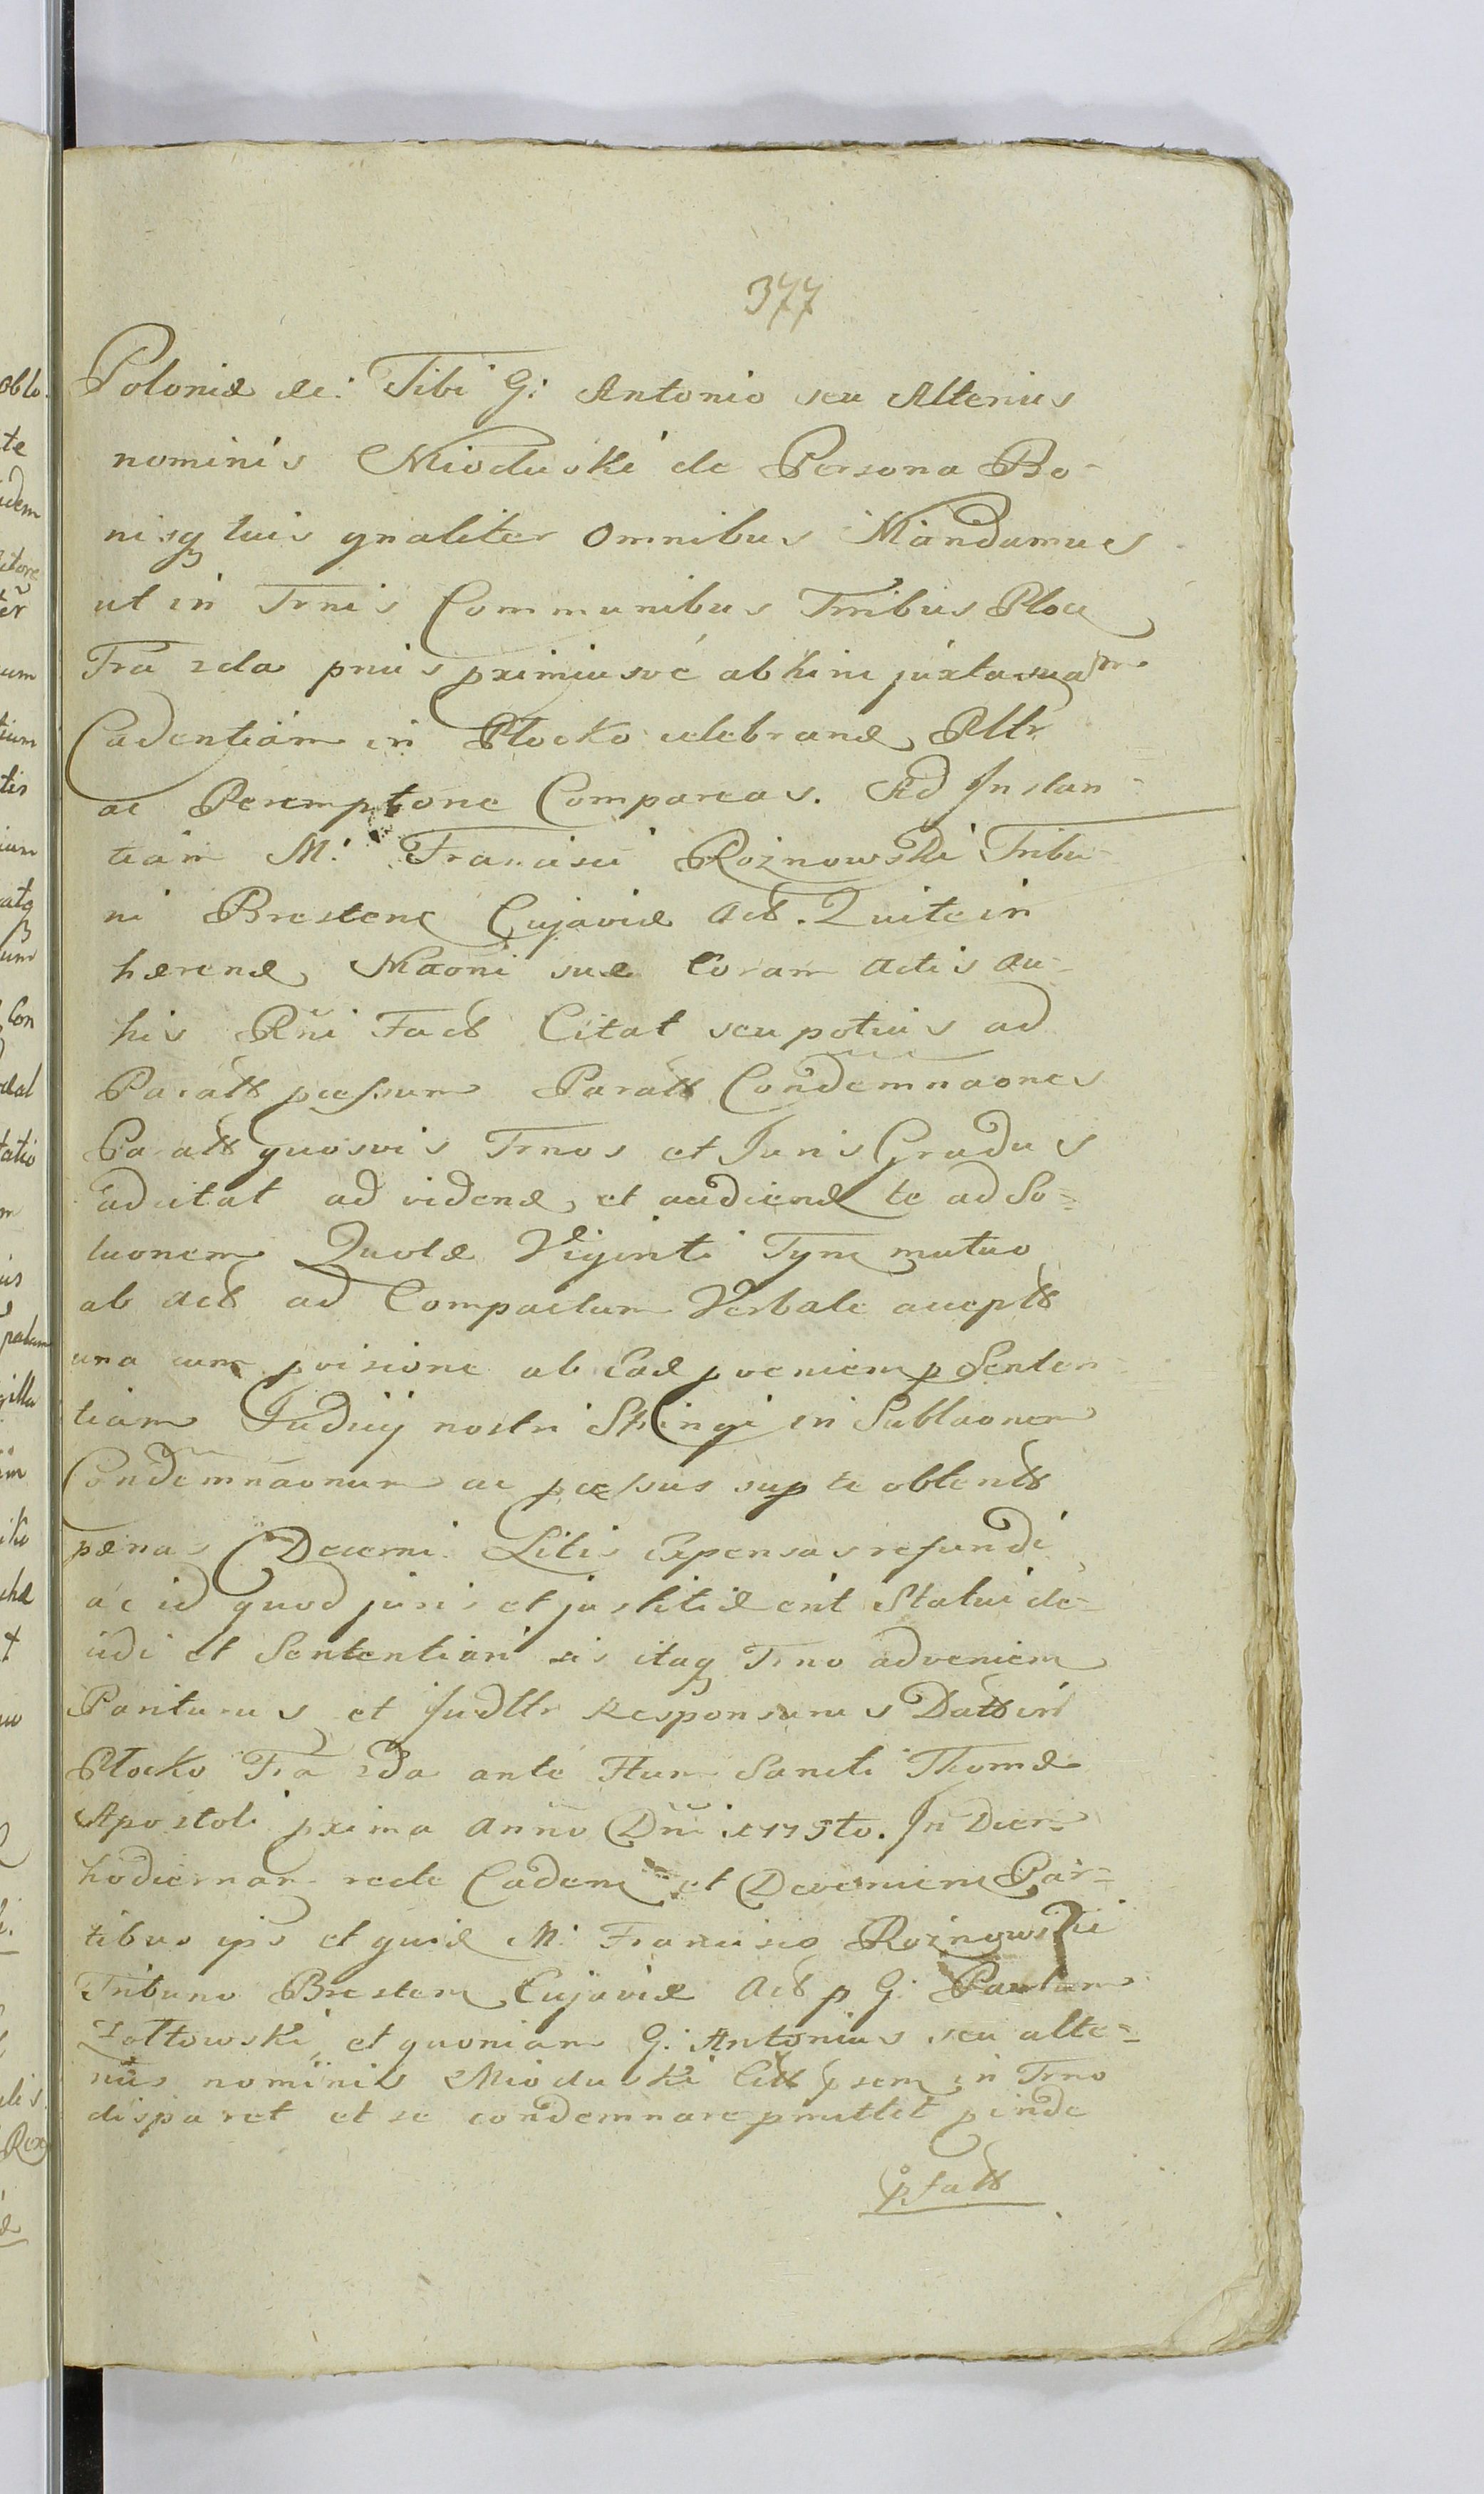 377
Poloniæ &c: Tibi G: Antonio seu Alterius
nominis Mioduski de Persona Bo-
nisq tuis gnaliter Omnibus Mandamus
ut in Trnis Communibus Trribus Ploc
Fra 2da prius pximiusve abhinc juxta suam
Cadentiam in Płocko celebrand Pltr
ac Peremptorie Compareas. Ad Instan-
tiam M: Francisci Rożnowski Tribu-
ni Brestens Cujaviæ Act. Qui te in
hærend Maoni suæ Coram Actis du-
his Rñi Fact Citat seu potius ad
Paratt pcessum Paratt Condemnaones
Paratt quosvis Trnos et Juris Gradus
adcitat ad vidend et audiend te ad So-
luonem Quotæ Viginti Tym mutuo
ab Act ad Compactum Verbale accept
una cum pvisione ab Ead pvenien p Senten-
tiam Judicij nostri Stringi in Sublaonem
Condemnaonum ac pcessus sup te obtent
pænas Decerni Litis Expensas refundi
ac id quod juris et justitiæ erit Statui de-
cidi et Sententiari sis itaq Trno advenien
Pariturus et Judltr Responsurus Datt in
Płocko Fra 2da ante Ftum Sancti Thomæ
Apostoli pxima Anno Dni 1775to. In Diem
hodiernam recte Caden et Devenien Par-
tibus ips et quid M: Francisco Rożnowski
Tribuno Bresten Cujaviæ Act p G: Paulum
Zołtowski, et quoniam G: Antonius seu alte-
rius nominis Mioduski Citt psen in Trno
disparet et se condemnare pmittit pinde
pfatt